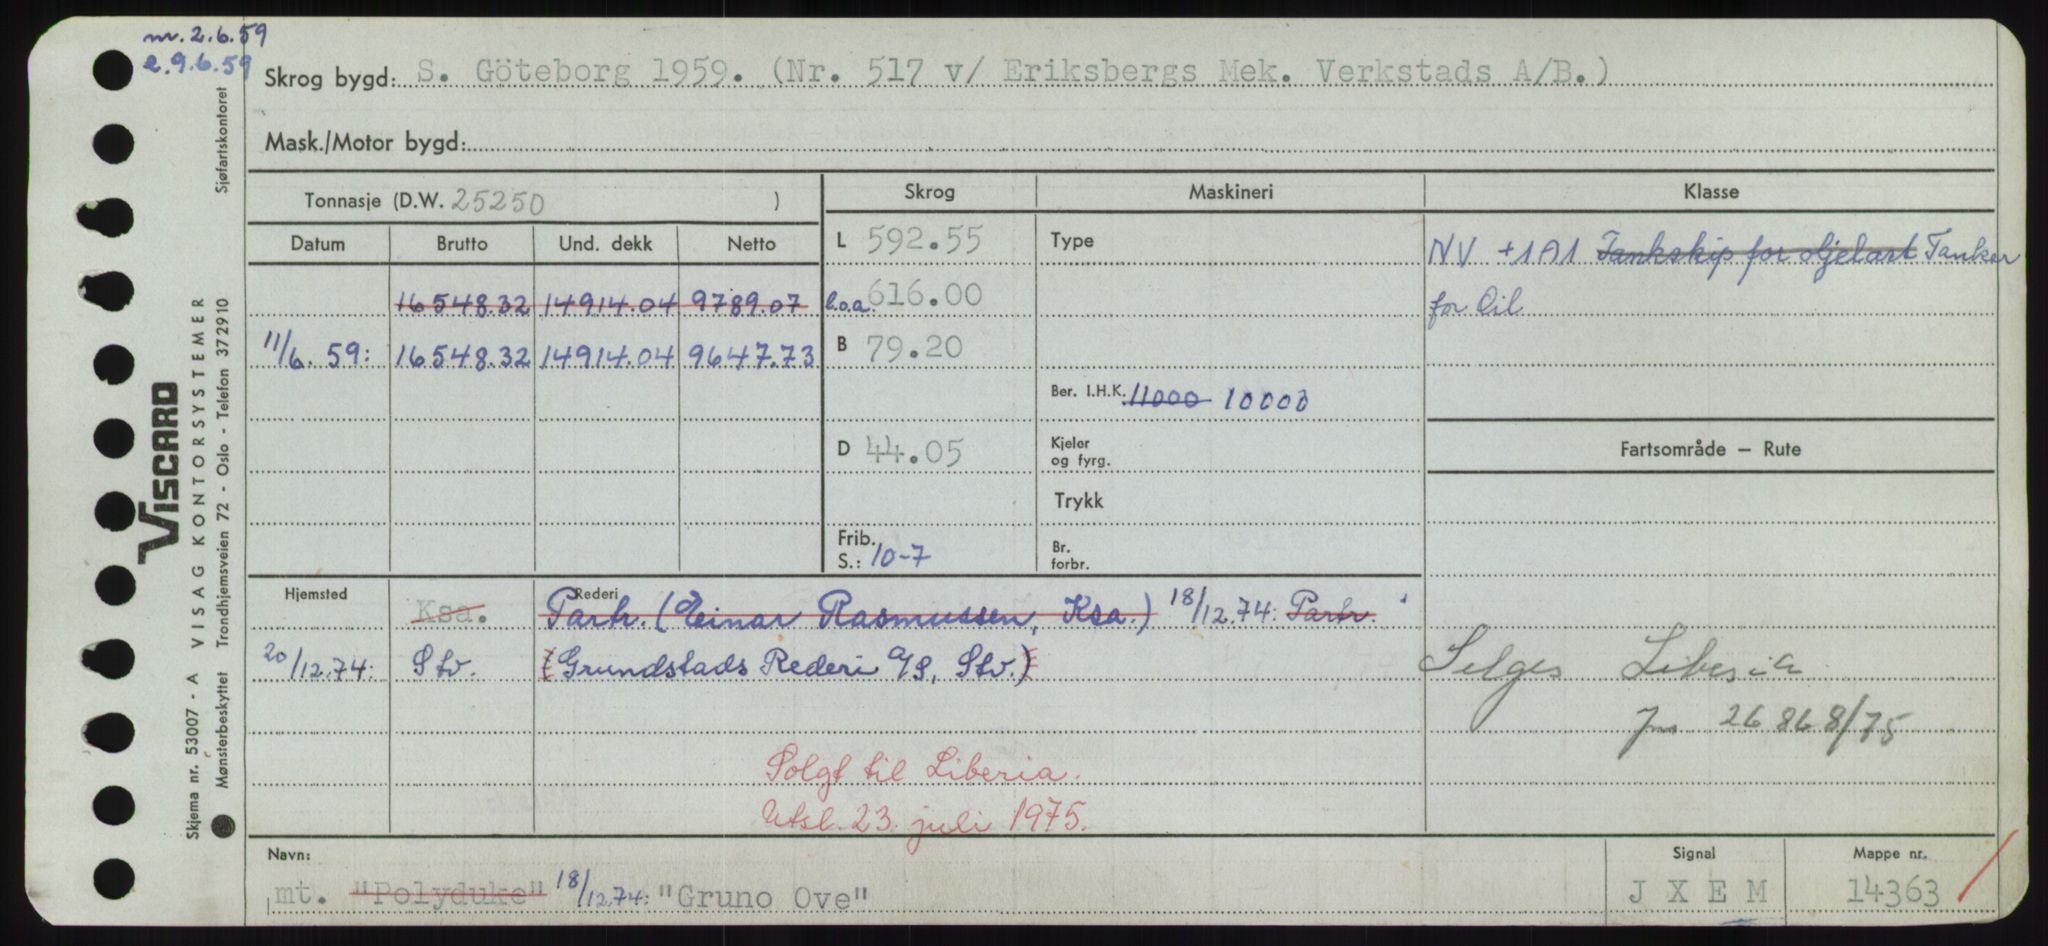 nr. 2.6.59
e. 9.6.59
Skrog bygd: S. Göteborg 1959. (Nr. 517 v/ Eriksbergs Mek. Verkstads A/B.)
Mask./Motor bygd:
Tonnasje (D.W. 25250 )
Skrog Maskineri Klasse
Datum Brutto Und. dekk Netto
L 592.55
Type
NV +1A1 Tankskip for oljelast Tanker
for Oil
16548.32 14914.04 9789.07
l.o.a. 616.00
11/6.59: 16548.32 14914.04 9647.73
B 79.20
Ber. I.H.K. 11000 10000
D 44.05
Kjeler
og fyrg.
Fartsområde – Rute
Trykk
Frib.
S.: 10-7
Br.
forbr.
Hjemsted Rederi
Ksa. Partr. (Einar Rasmussen, Ksa.) 18/12.74: Partr.
20/12.74: Stv. (Grundstads Rederi A/S, Stv.)
Selges Liberia
Jnr 26868/75
Solgt til Liberia.
Utsl. 23. juli 1975.
Navn: Signal Mappe nr.
mt. "Polyduke" 18/12.74: "Gruno Ove" JXEM 14363
Viscard
VISAG KONTORSYSTEMER
Sjøfartskontoret
Skjema nr. 53007 - A
Mønsterbeskyttet Trondhjemsveien 72 - Oslo - Telefon 372910